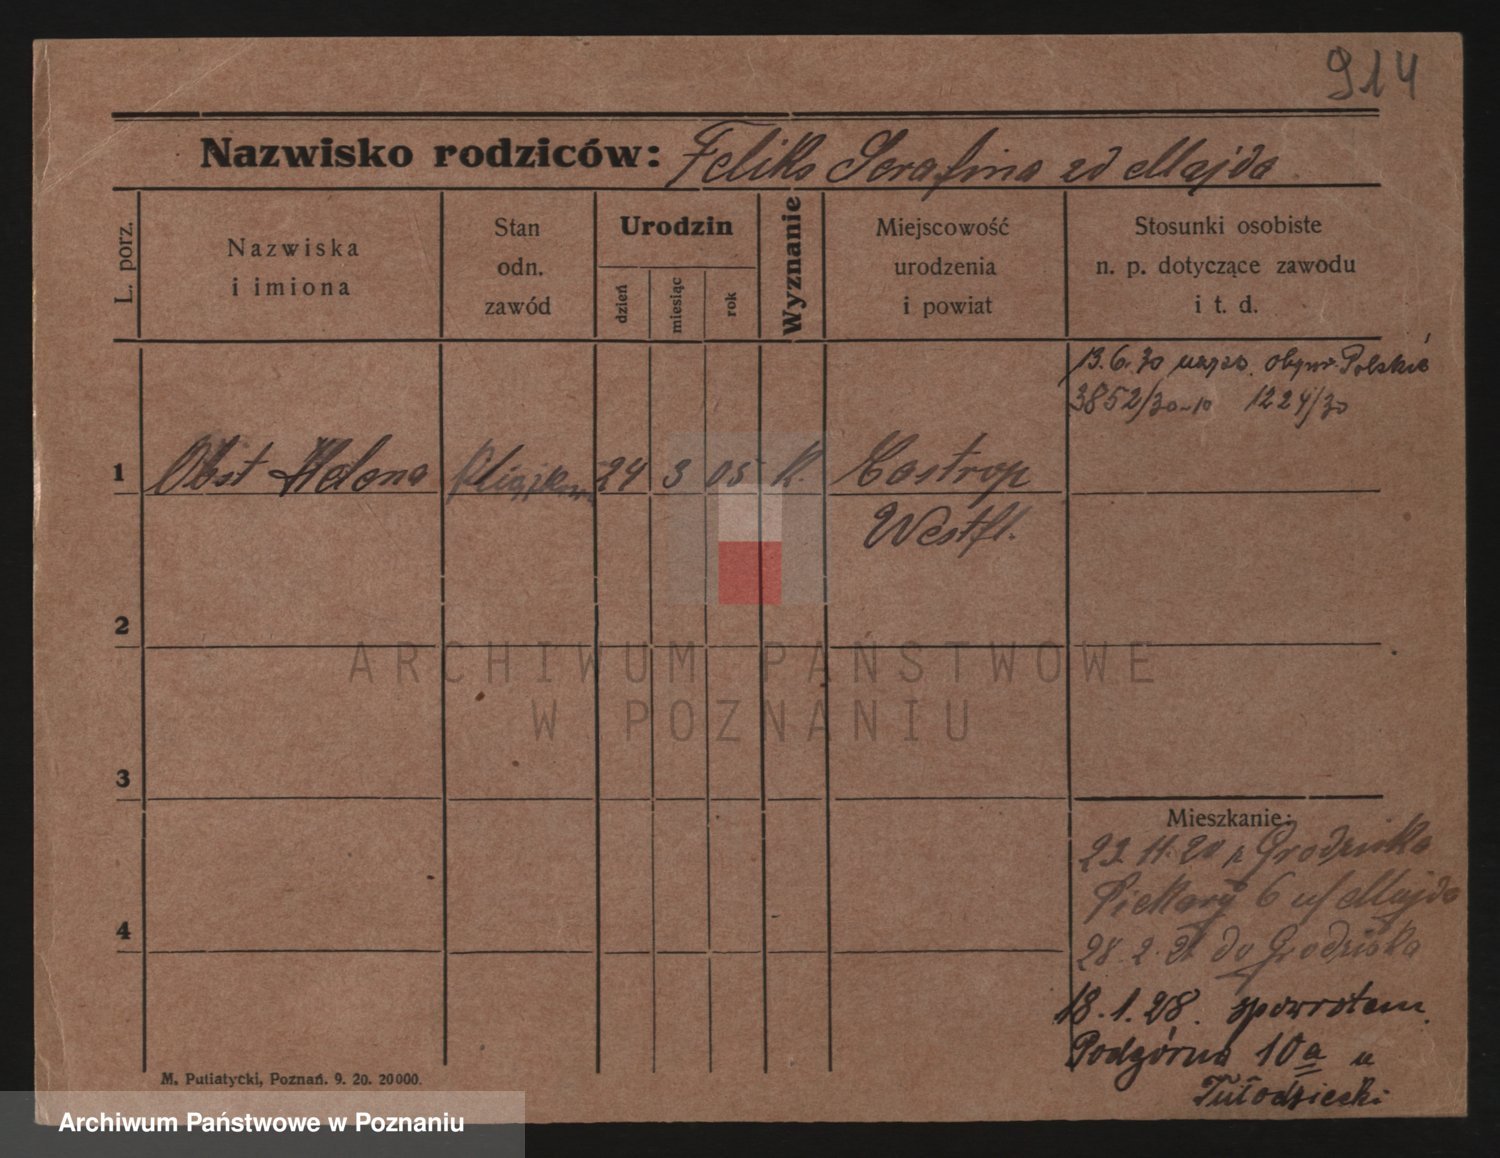 914
Nazwisko rodziców: Feliks Serafina zd Majda
L. porz.
Nazwiska
i imiona
Stan
odn.
zawód
Urodzin
dzień
miesiąc
rok
Wyznanie
Miejscowość
urodzenia
i powiat
Stosunki osobiste
n. p. dotyczące zawodu
i t. d.
13.6.30 obyw. Polskie
3852/30-10 1224/30
1 Obst Helena 24 3 05 K. Castrop
Westfl.
2
ARCHIWUM PAŃSTWOWE
W POZNANIU
3
Mieszkanie:
23 11. 20 z Grodziska
Piekary 6 u/ Majda
4
28. 2. 21 do Grodziska
18. 1. 28. spowrotem.
Podgórna 10a u
Tułodziecki
M. Putiatycki, Poznań. 9. 20. 20000.
Archiwum Państwowe w Poznaniu